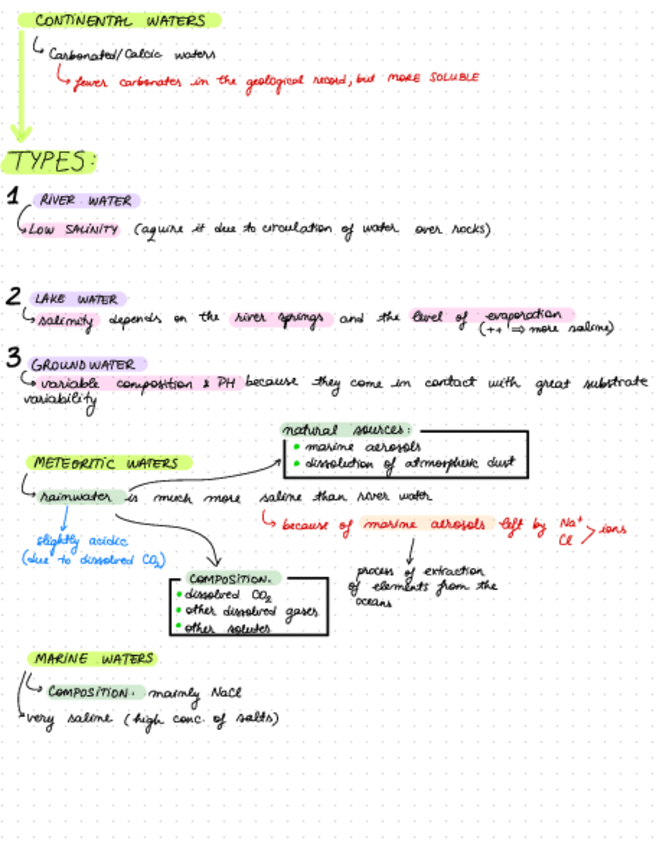 CONTINENTAL WATERS
Carbonated/Calcic waters
fewer carbonates in the geological record, but MORE SOLUBLE
TYPES:
1 RIVER WATER
LOW SALINITY (aquire it due to circulation of water over rocks)
2 LAKE WATER
salinity depends on the river springs and the level of evaporation
(++ ⇒ more saline)
3 GROUNDWATER
variable composition & PH because they come in contact with great substrate
variability
natural sources:
• marine aerosols
• dissolution of atmospheric dust
METEORITIC WATERS
rainwater is much more saline than river water
because of marine aerosols left by Na⁺ Cl⁻ > ions
slightly acidic
(due to dissolved CO₂)
process of extraction
of elements from the
oceans
COMPOSITION.
• dissolved CO₂
• other dissolved gases
• other solutes
MARINE WATERS
COMPOSITION. mainly NaCl
very saline (high conc. of salts)